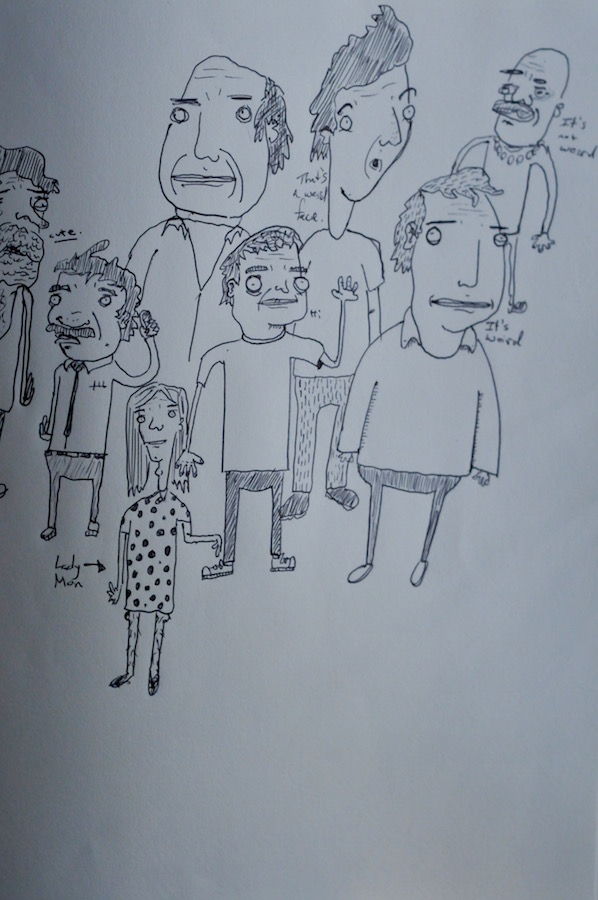 It's
not
weird
That's
a weird
face.
Hi
It's
weird
Lady
Man